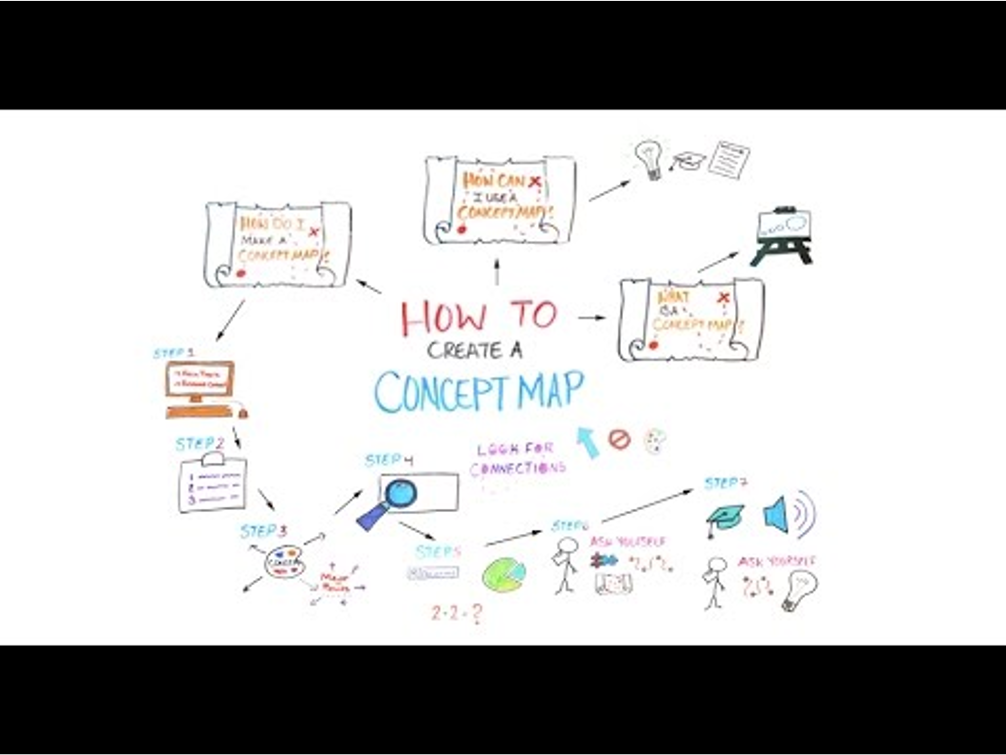 HOW CAN
I USE A
CONCEPT MAP?
HOW DO I
MAKE A
CONCEPT MAP?
WHAT
IS A
CONCEPT MAP?
HOW TO
CREATE A
CONCEPT MAP
STEP 1
STEP 2
1
2
3
STEP 3
STEP 4
LOOK FOR
CONNECTIONS
STEP 5
STEP 6
ASK YOURSELF
STEP 7
ASK YOURSELF